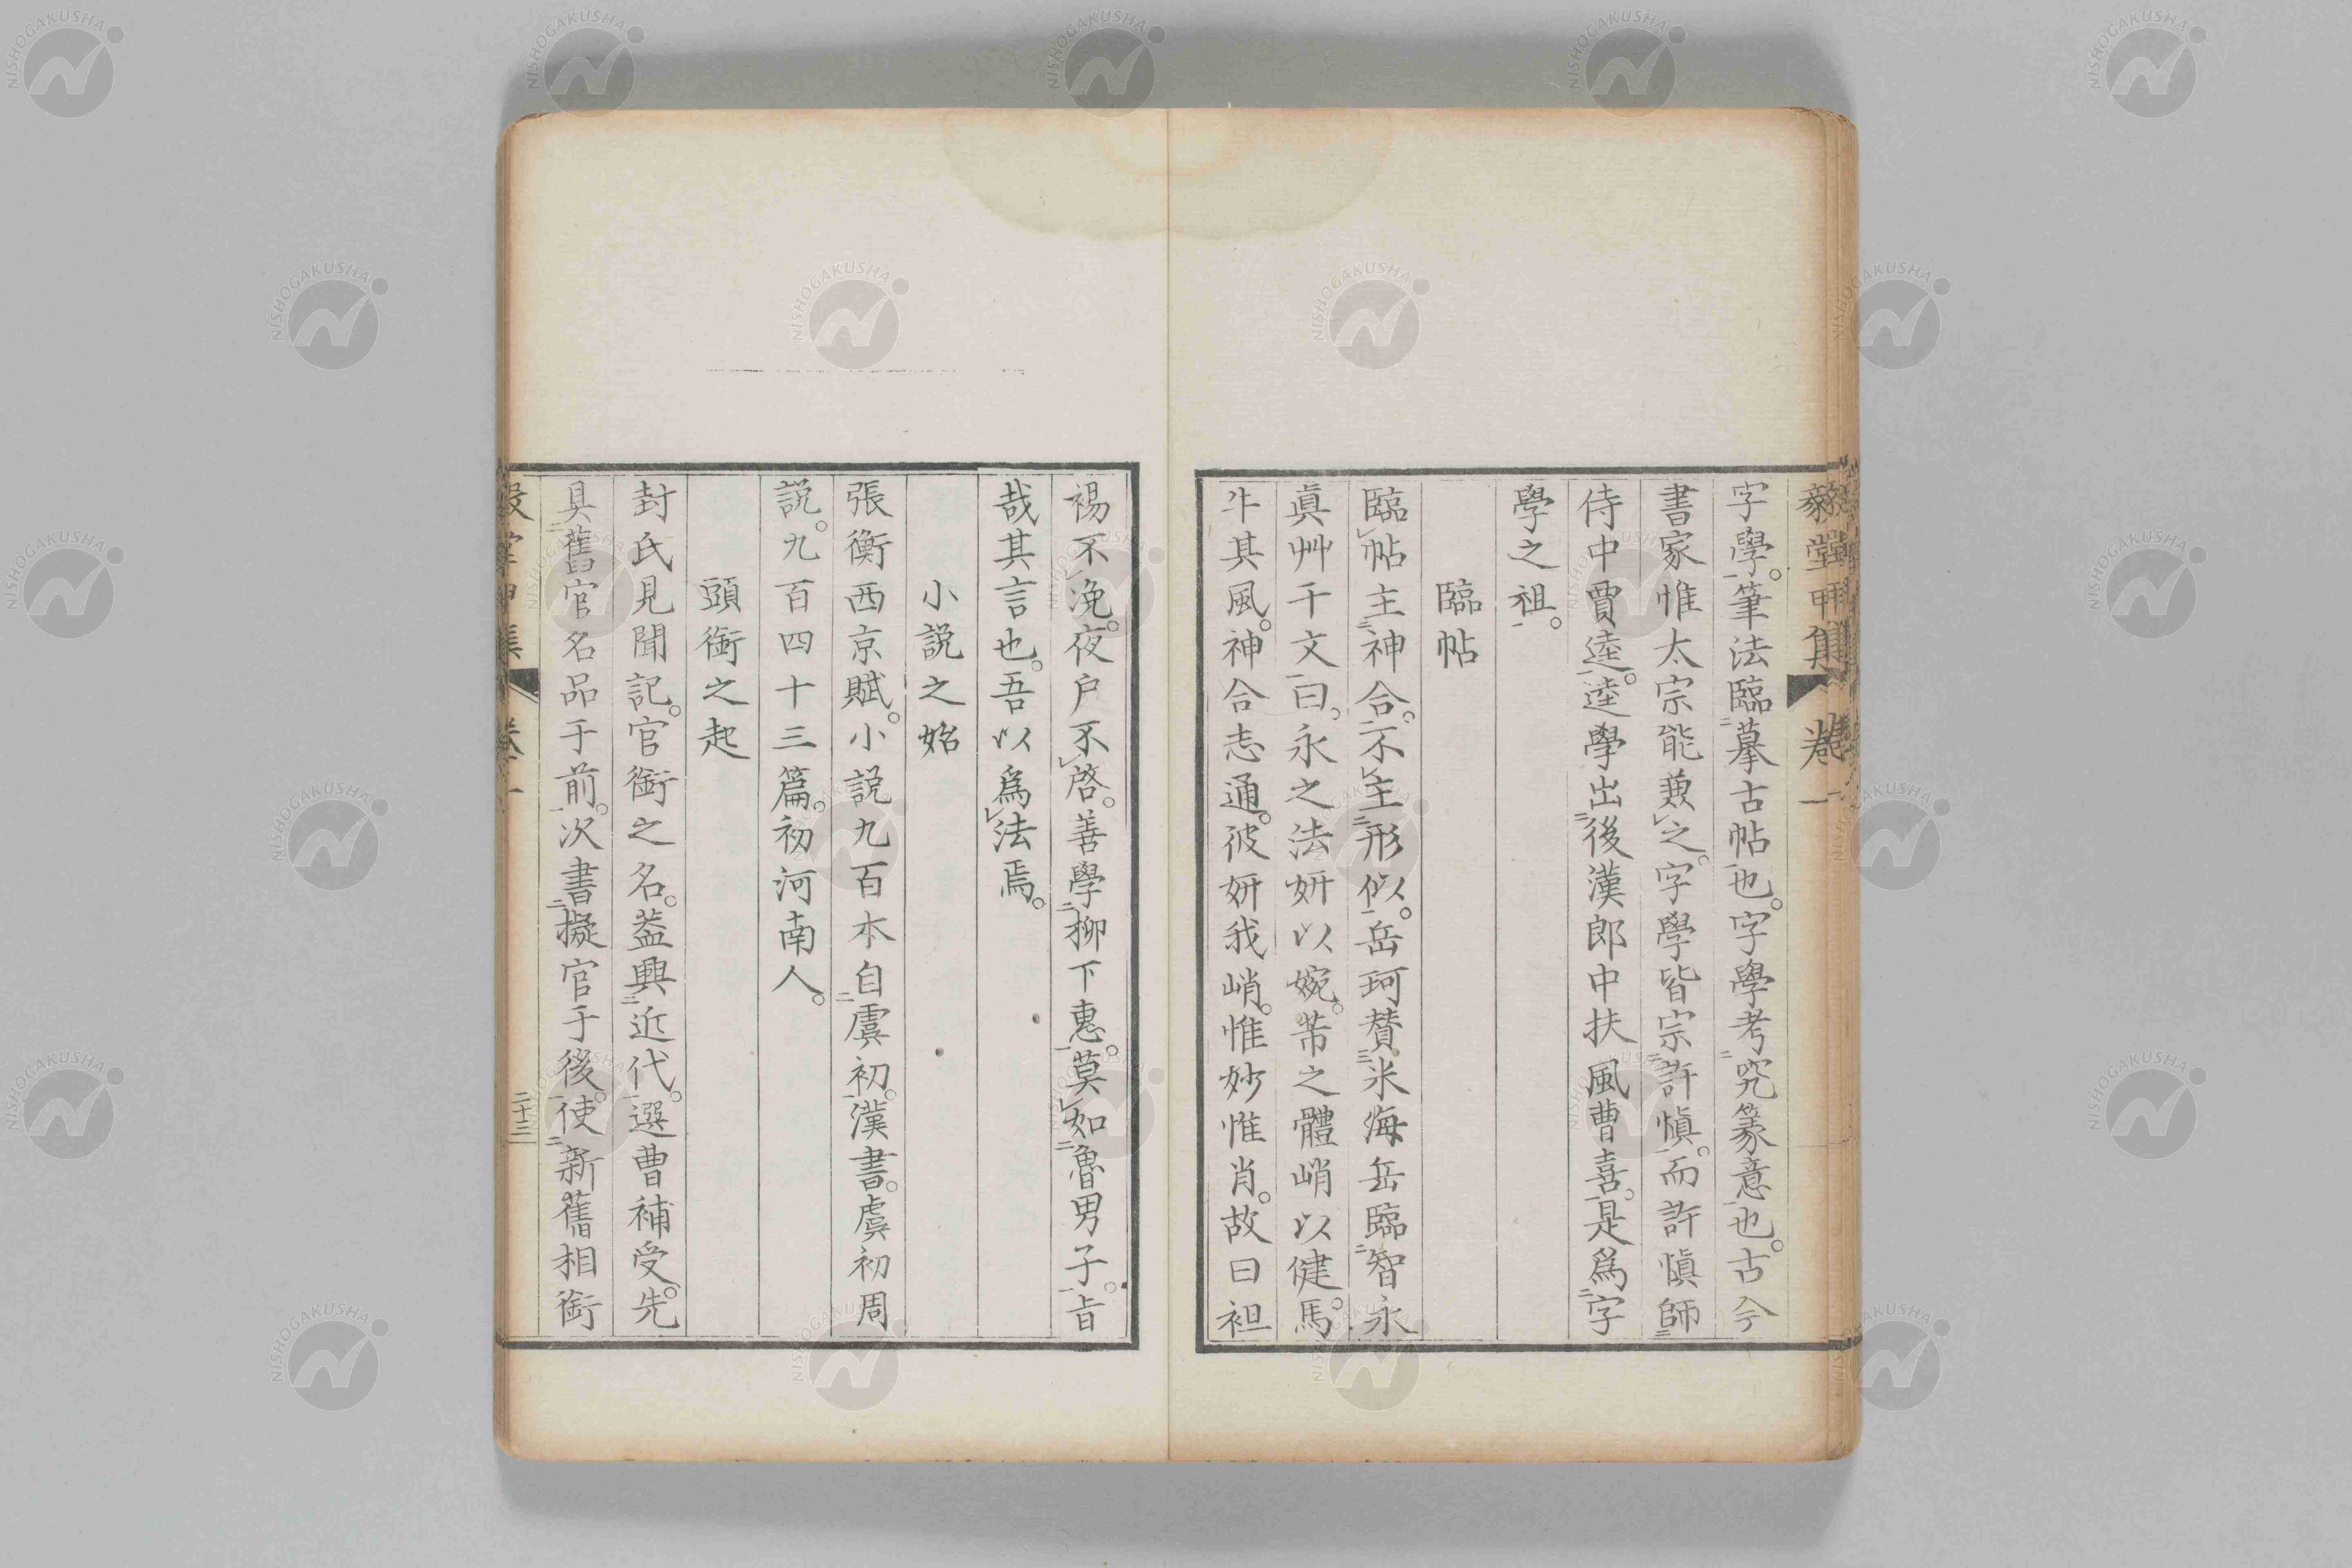 毅堂甲集　卷一
字學。筆法臨摹古帖也。字學考究篆意也。古今
書家惟太宗能兼之。字學皆宗許愼。而許愼師
侍中賈逵。逵學出後漢郎中扶風曹喜。是爲字
學之祖。
臨帖
臨帖主神合。不主形似。岳珂贊米海岳臨智永
眞艸千文曰。永之法妍以婉。芾之體峭以健。馬
牛其風。神合志通。彼妍我峭。惟妙惟肖。故曰袒
裼不浼。夜户不啓。善學柳下惠。莫如魯男子。旨
哉其言也。吾以爲法焉。
小説之始
張衡西京賦。小説九百本自虞初。漢書。虞初周
説。九百四十三篇。初河南人。
頭銜之起
封氏見聞記。官銜之名。葢興近代。選曹補受。先
具舊官名品于前。次書擬官于後。使新舊相銜
卷一
二十三
NISHOGAKUSHA